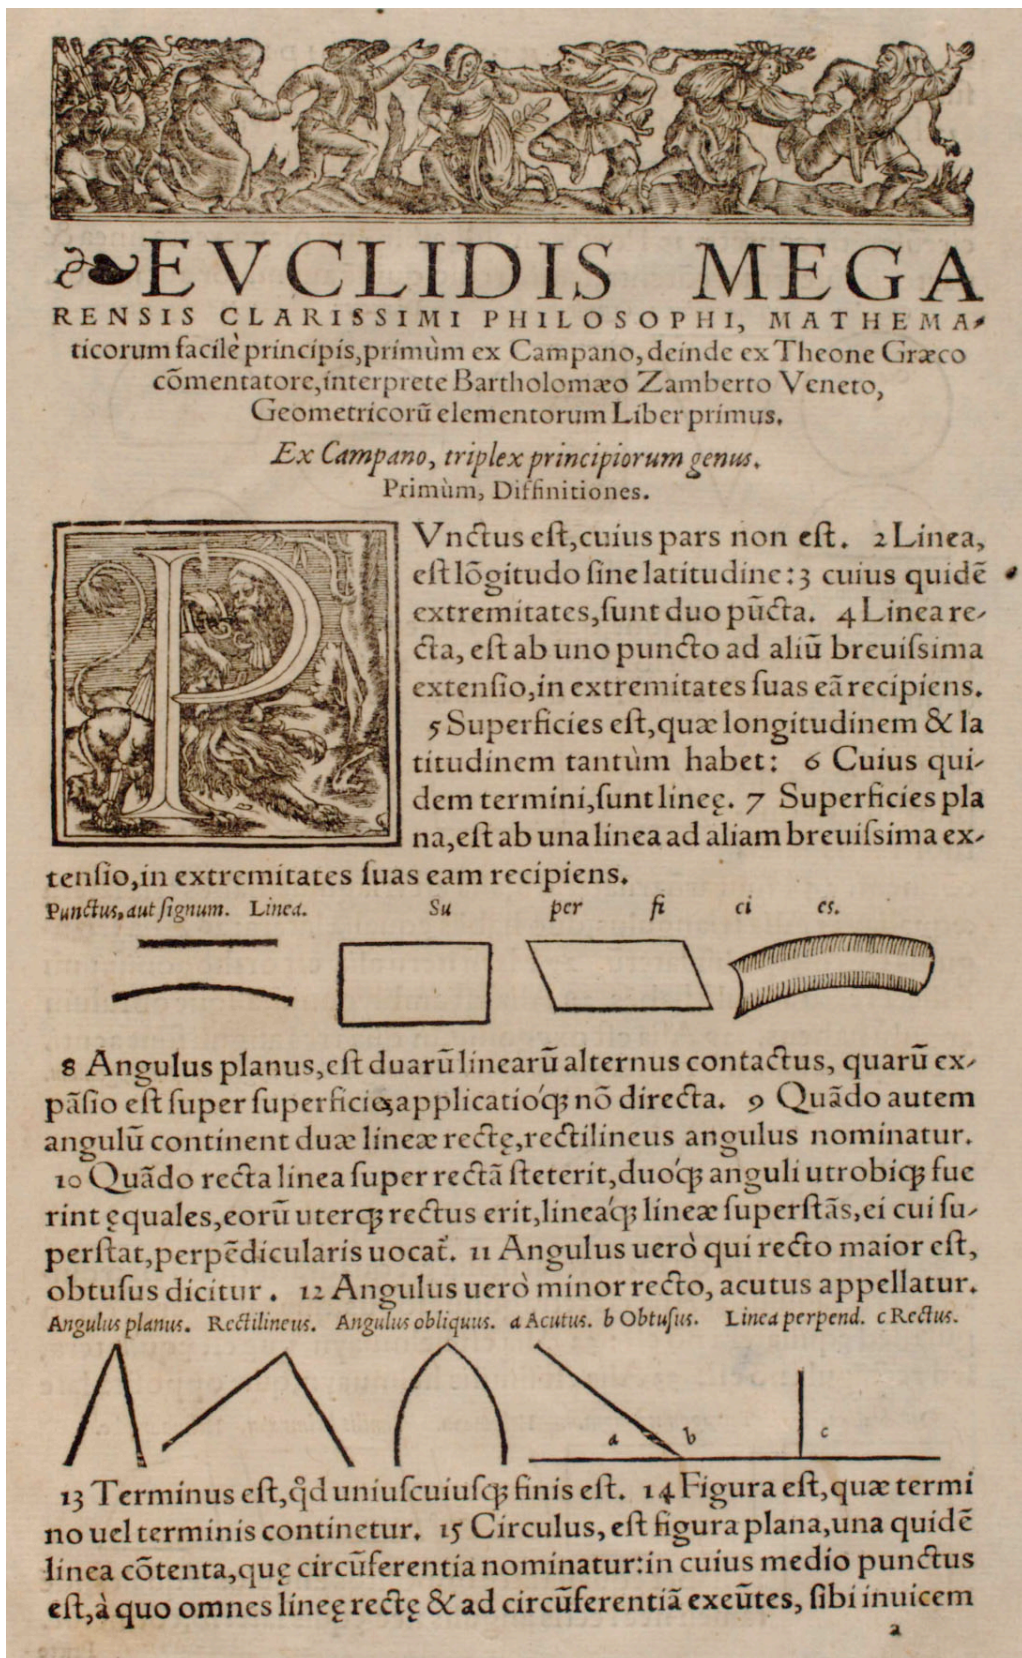 EVCLIDIS MEGA
RENSIS CLARISSIMI PHILOSOPHI, MATHEMA-
ticorum facilè principis, primùm ex Campano, deinde ex Theone Græco
cōmentatore, interprete Bartholomæo Zamberto Veneto,
Geometricorū elementorum Liber primus.
Ex Campano, triplex principiorum genus.
Primùm, Diffinitiones.
PVnctus eſt, cuius pars non eſt. 2 Linea,
eſt lōgitudo ſine latitudine: 3 cuius quidē
extremitates, ſunt duo pūcta. 4 Linea re-
cta, eſt ab uno puncto ad aliū breuiſsima
extenſio, in extremitates ſuas eā recipiens.
5 Superficies eſt, quæ longitudinem & la
titudinem tantùm habet: 6 Cuius qui-
dem termini, ſunt lineę. 7 Superficies pla
na, eſt ab una linea ad aliam breuiſsima ex-
tenſio, in extremitates ſuas eam recipiens.
Punctus, aut ſignum. Linea. Su per fi ci es.
8 Angulus planus, eſt duarū linearū alternus contactus, quarū ex-
pāſio eſt ſuper ſuperficie, applicatioq́ꝫ nō directa. 9 Quādo autem
angulū continent duæ lineæ rectę, rectilineus angulus nominatur.
10 Quādo recta linea ſuper rectā ſteterit, duoq́ꝫ anguli utrobiqꝫ fue
rint ęquales, eorū uterqꝫ rectus erit, lineaq́ꝫ lineæ ſuperſtās, ei cui ſu-
perſtat, perpēdicularis uocat̃. 11 Angulus uerò qui recto maior eſt,
obtuſus dicitur. 12 Angulus uerò minor recto, acutus appellatur.
Angulus planus. Rectilineus. Angulus obliquus. a Acutus. b Obtuſus. Linea perpend. c Rectus.
a b c
13 Terminus eſt, qd̓ uniuſcuiuſqꝫ finis eſt. 14 Figura eſt, quæ termi
no uel terminis continetur. 15 Circulus, eſt figura plana, una quidē
linea cōtenta, quę circūferentia nominatur: in cuius medio punctus
eſt, à quo omnes lineę rectę & ad circūferentiā exeūtes, ſibi inuicem
a